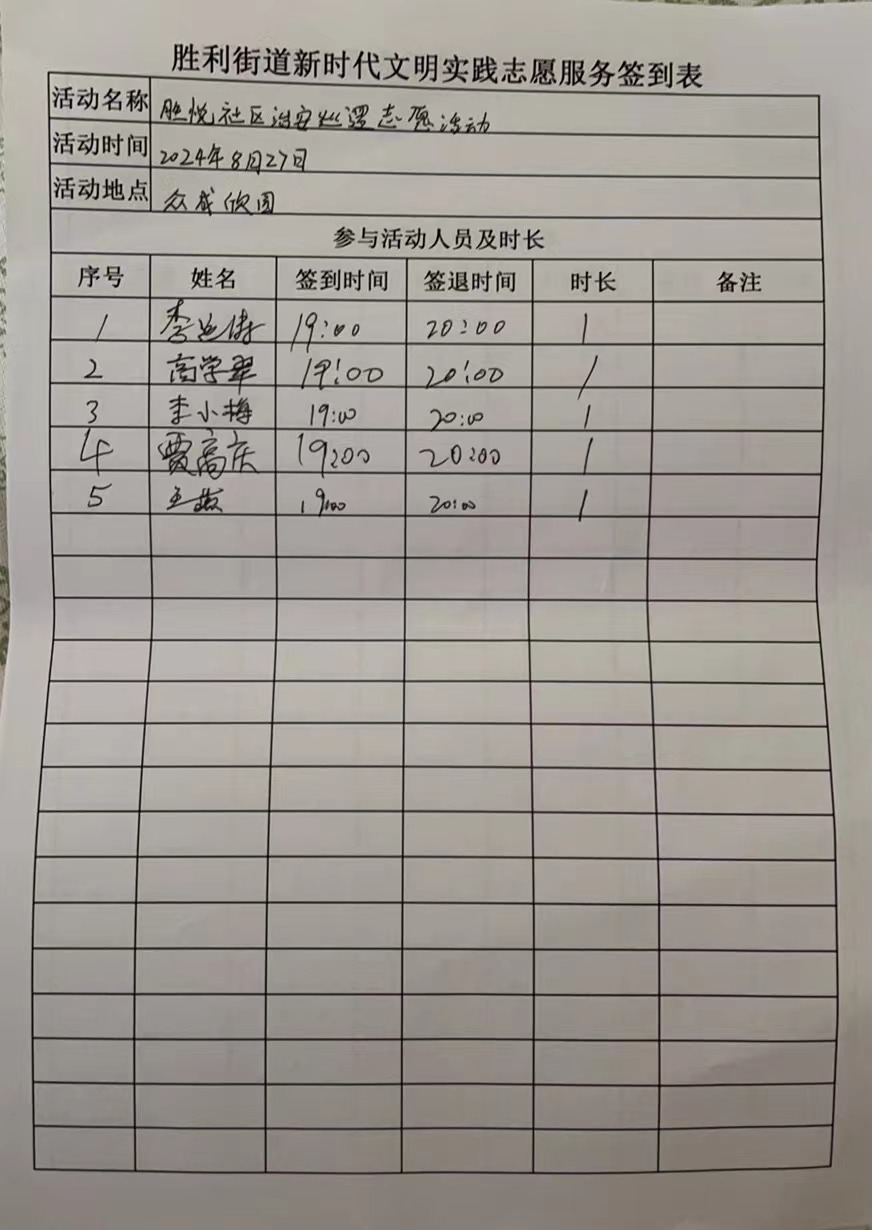 胜利街道新时代文明实践志愿服务签到表
活动名称 胜悦社区治安巡逻志愿活动
活动时间 2024年8月27日
活动地点 众成欣园
参与活动人员及时长
序号 姓名 签到时间 签退时间 时长 备注
1 李 19:00 20:00 1
2 高学翠 19:00 20:00 1
3 李小梅 19:00 20:00 1
4 贾高庆 19:00 20:00 1
5 王 19:00 20:00 1